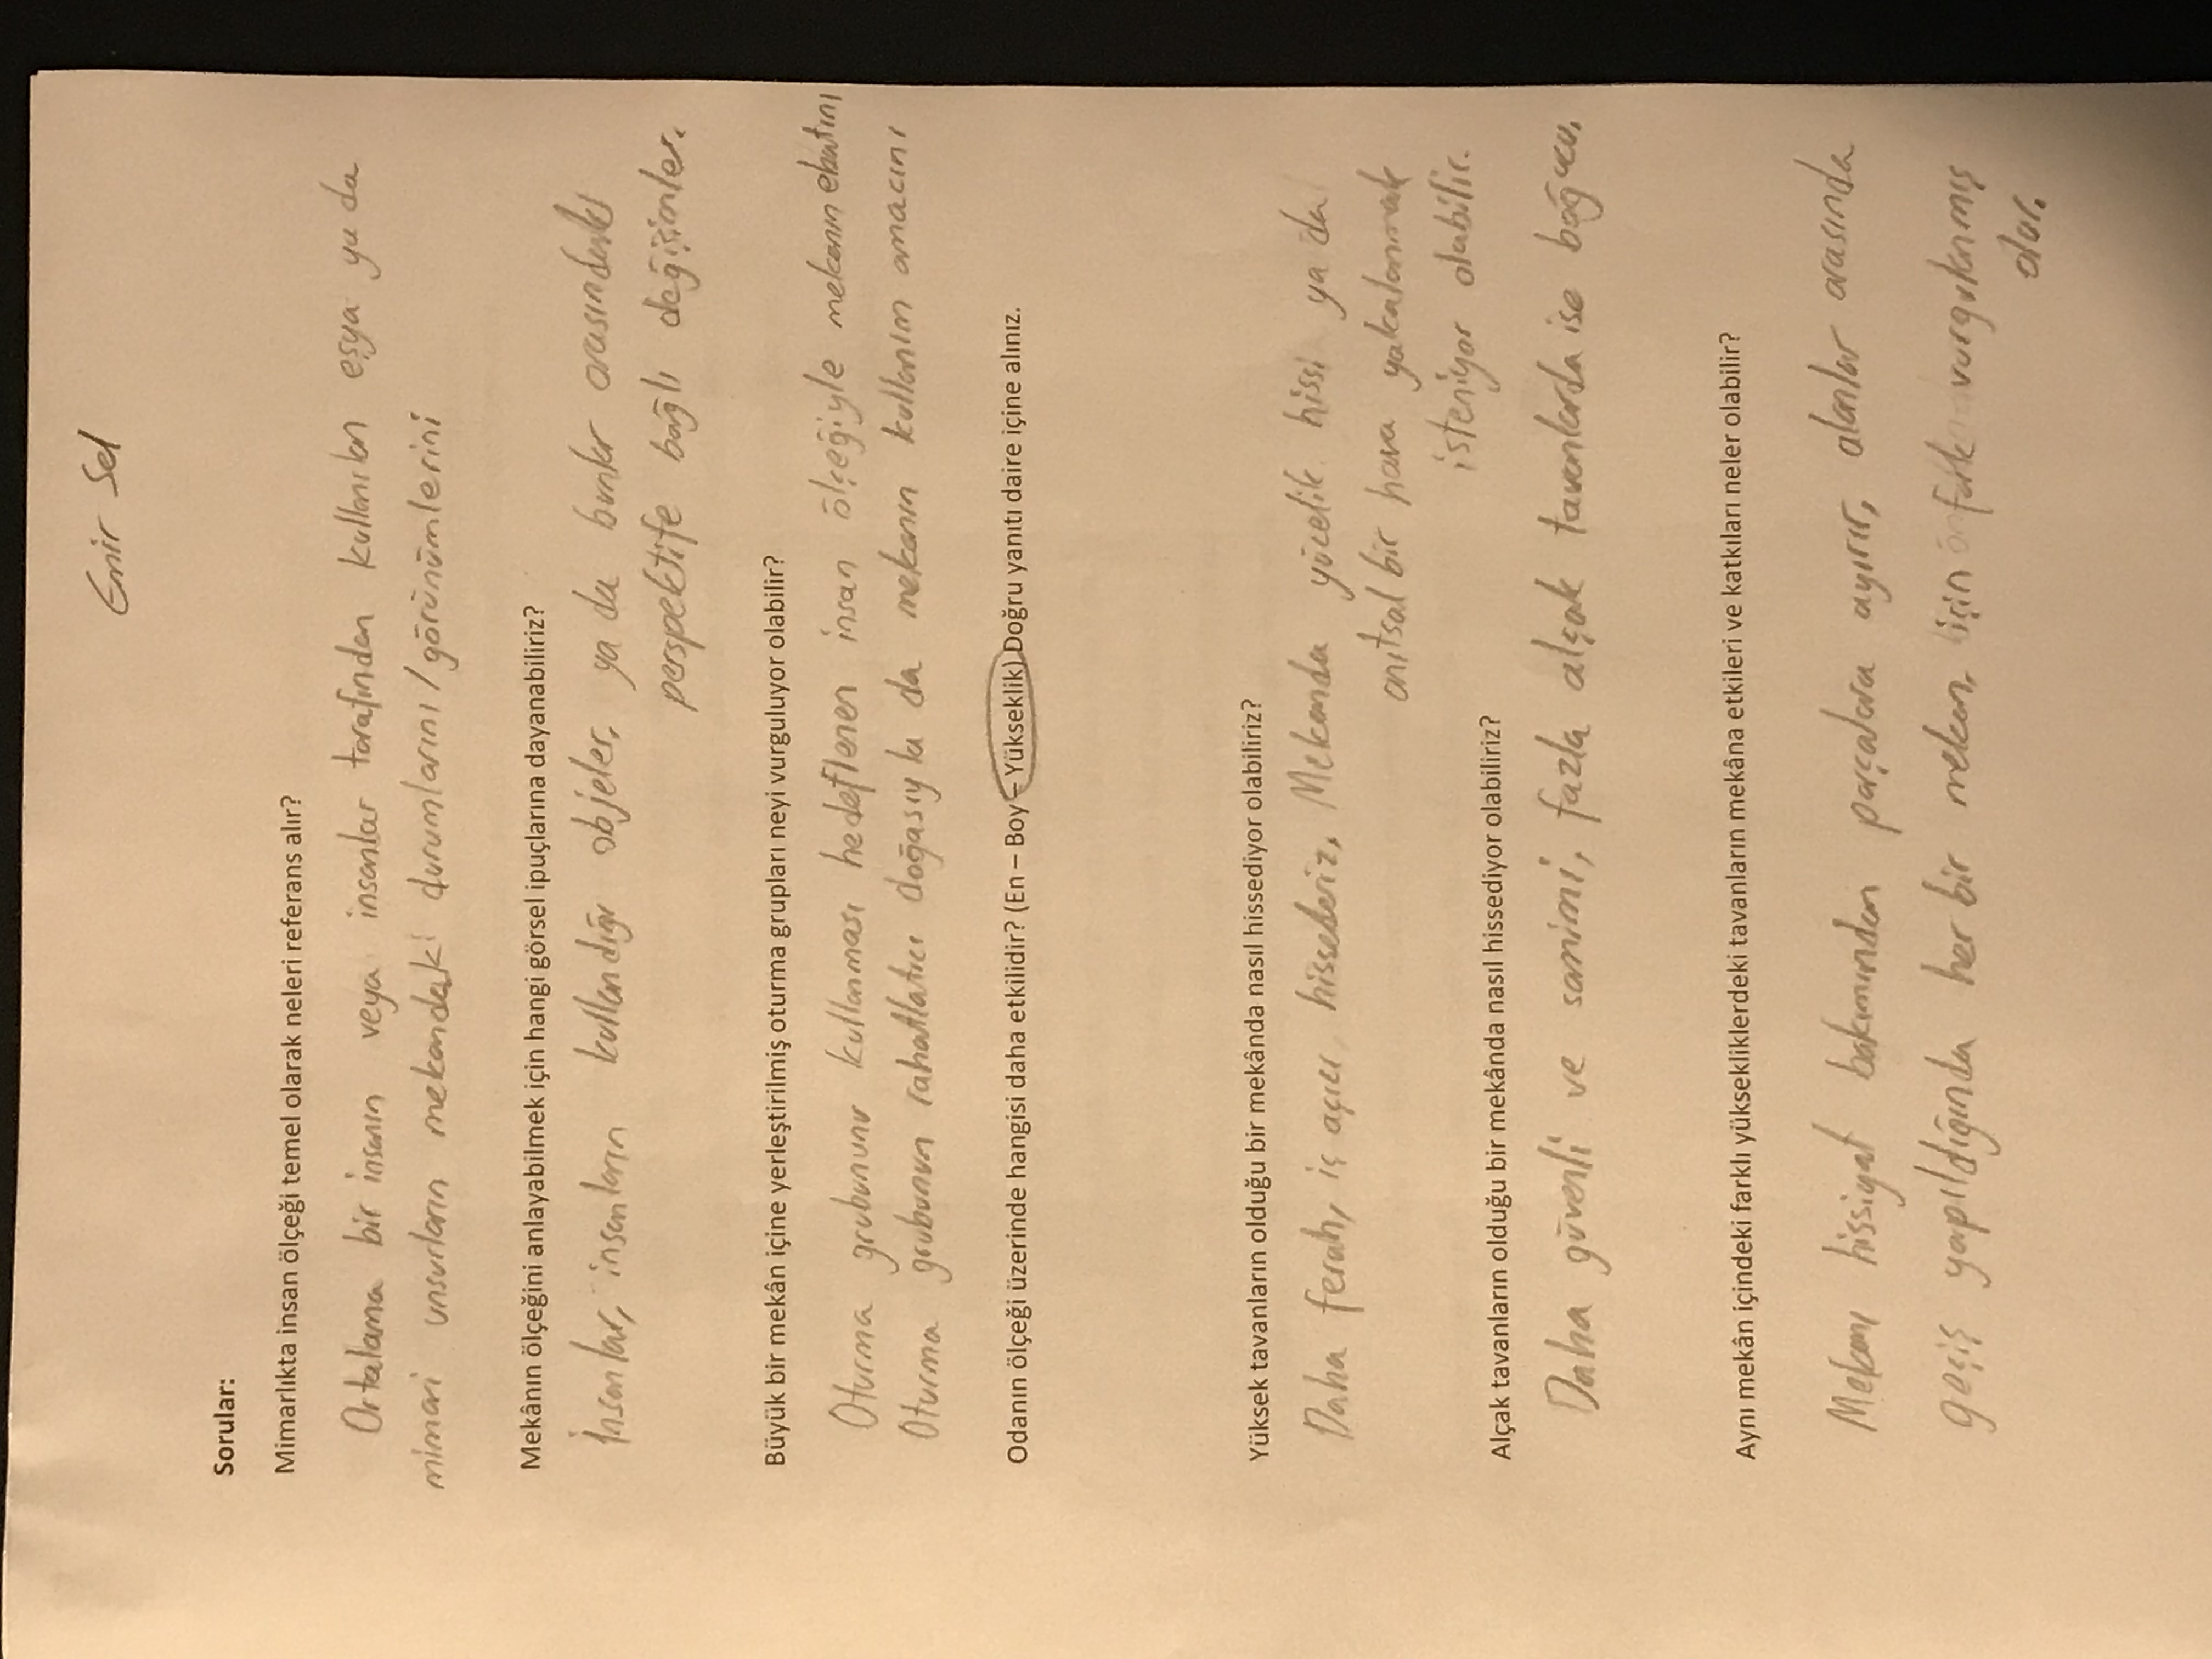 Emir Sel
Sorular:
Mimarlıkta insan ölçeği temel olarak neleri referans alır?
Ortalama bir insanın veya insanlar tarafından kullanılan eşya ya da
mimari unsurların mekandaki durumlarını/görünümlerini
Mekânın ölçeğini anlayabilmek için hangi görsel ipuçlarına dayanabiliriz?
İnsanlar, insanların kullandığı objeler, ya da bunlar arasındaki
perspektife bağlı değişimler.
Büyük bir mekân içine yerleştirilmiş oturma grupları neyi vurguluyor olabilir?
Oturma grubunun kullanması hedeflenen insan ölçeğiyle mekanın ebatını
Oturma grubunun rahatlatıcı doğasıyla da mekanın kullanım amacını
Odanın ölçeği üzerinde hangisi daha etkilidir? (En – Boy – Yükseklik) Doğru yanıtı daire içine alınız.
Yüksek tavanların olduğu bir mekânda nasıl hissediyor olabiliriz?
Daha ferah, iç açıcı hissederiz, Mekanda yücelik hissi ya da
anıtsal bir hava yakalanmak
isteniyor olabilir.
Alçak tavanların olduğu bir mekânda nasıl hissediyor olabiliriz?
Daha güvenli ve samimi, fazla alçak tavanlarda ise boğucu.
Aynı mekân içindeki farklı yüksekliklerdeki tavanların mekâna etkileri ve katkıları neler olabilir?
Mekanı hissiyat bakımından parçalara ayırır, alanlar arasında
geçiş yapıldığında her bir mekan için vurgulanmış
olur.